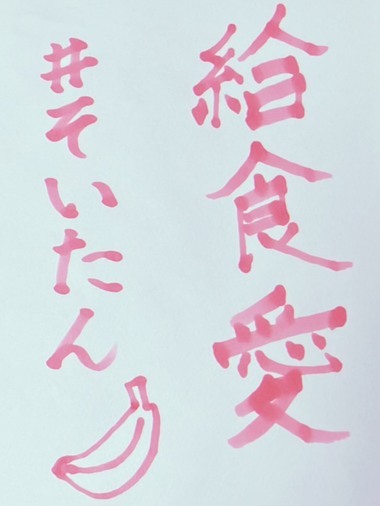 給食愛
#そいたん